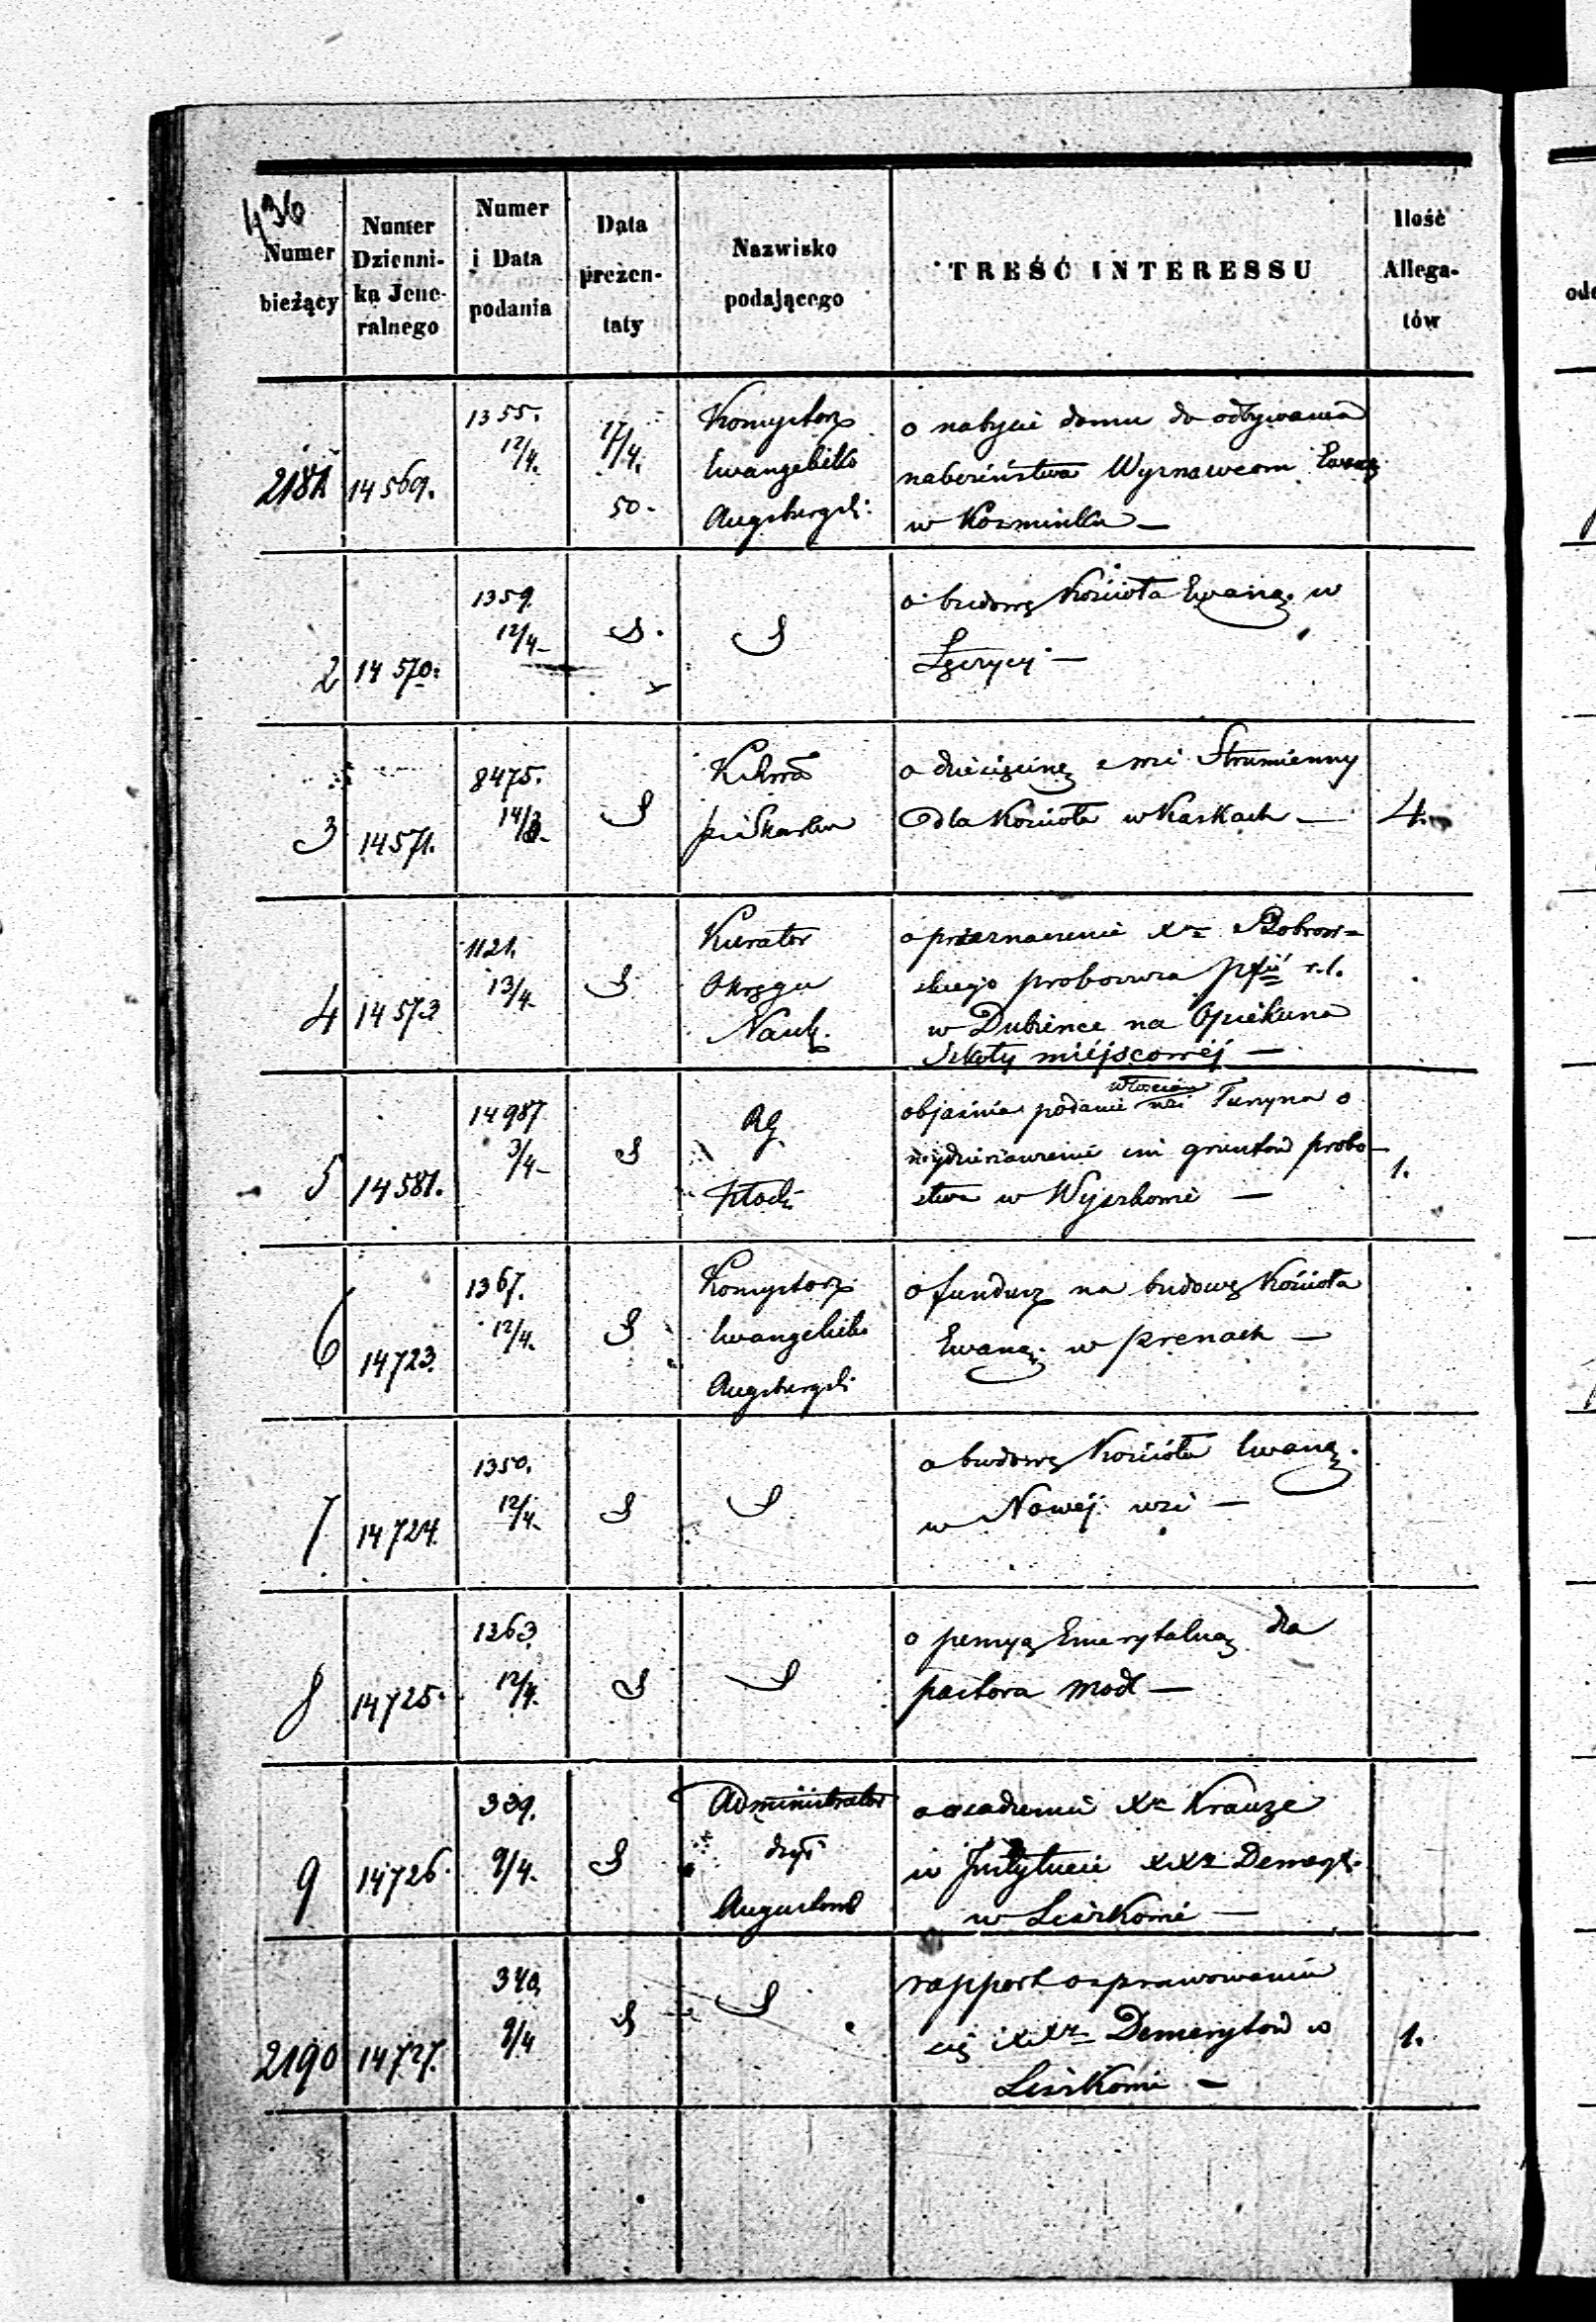 436
Numer bieżący
Numer Dzienni-ka Jene-ralnego
Numer i Data podania
Data prezen-taty
Nazwisko podającego
TREŚĆ INTERESSU
Ilość Allega-tów
2181 14569. 1355. 12/4. 17/4. 50. Komystorz Ewangelicko Augsburgski: o nabycie domu do odbywania
nabożeństwa Wyznawcom Ewang
w Kozminku —
2 14570. 1359. 12/4 S. S o budowę Kościoła Ewang. w
Łęczycy —
3 14571. 8475. S o dziesięcinę z wsi Strumienny
dla Kościoła w Kaskach — 4.
4 14573 1121. 13/4 S Kurator Okręgu Nauk. o przeznaczenie Xdz Bobrow=
skiego proboszcza r. l.
w Dubience na Opiekuna
Szkoły miejscowej —
5 14581. 14987 3/4 S RG. Płock objaśnia podanie włościan wsi Turzyna o
wydzierżawienie im gruntów probo-
stwa w Wyszkowie — 1.
6 14723. 1367. 12/4. S Komystorz Ewangelicko Augsburgski o fundusz na budowę Kościoła
Ewang. w Prenach —
7 14724. 1350. 12/4. S S o budowę Kościoła Ewang.
w Nowej wsi —
8 14725. 1363 12/4. S S o pensyą Emerytalną dla
pastora Modl —
9 14726. 339. 9/4. S Administrator dyć Augustows o osadzenie Xdz Krauze
w Instytucie XXz Demeryt.
w Liszkowie —
2190 14727. 340. 9/4 S S rapport o sprawowaniu
się XXz Demerytów w
Liszkowie — 1.